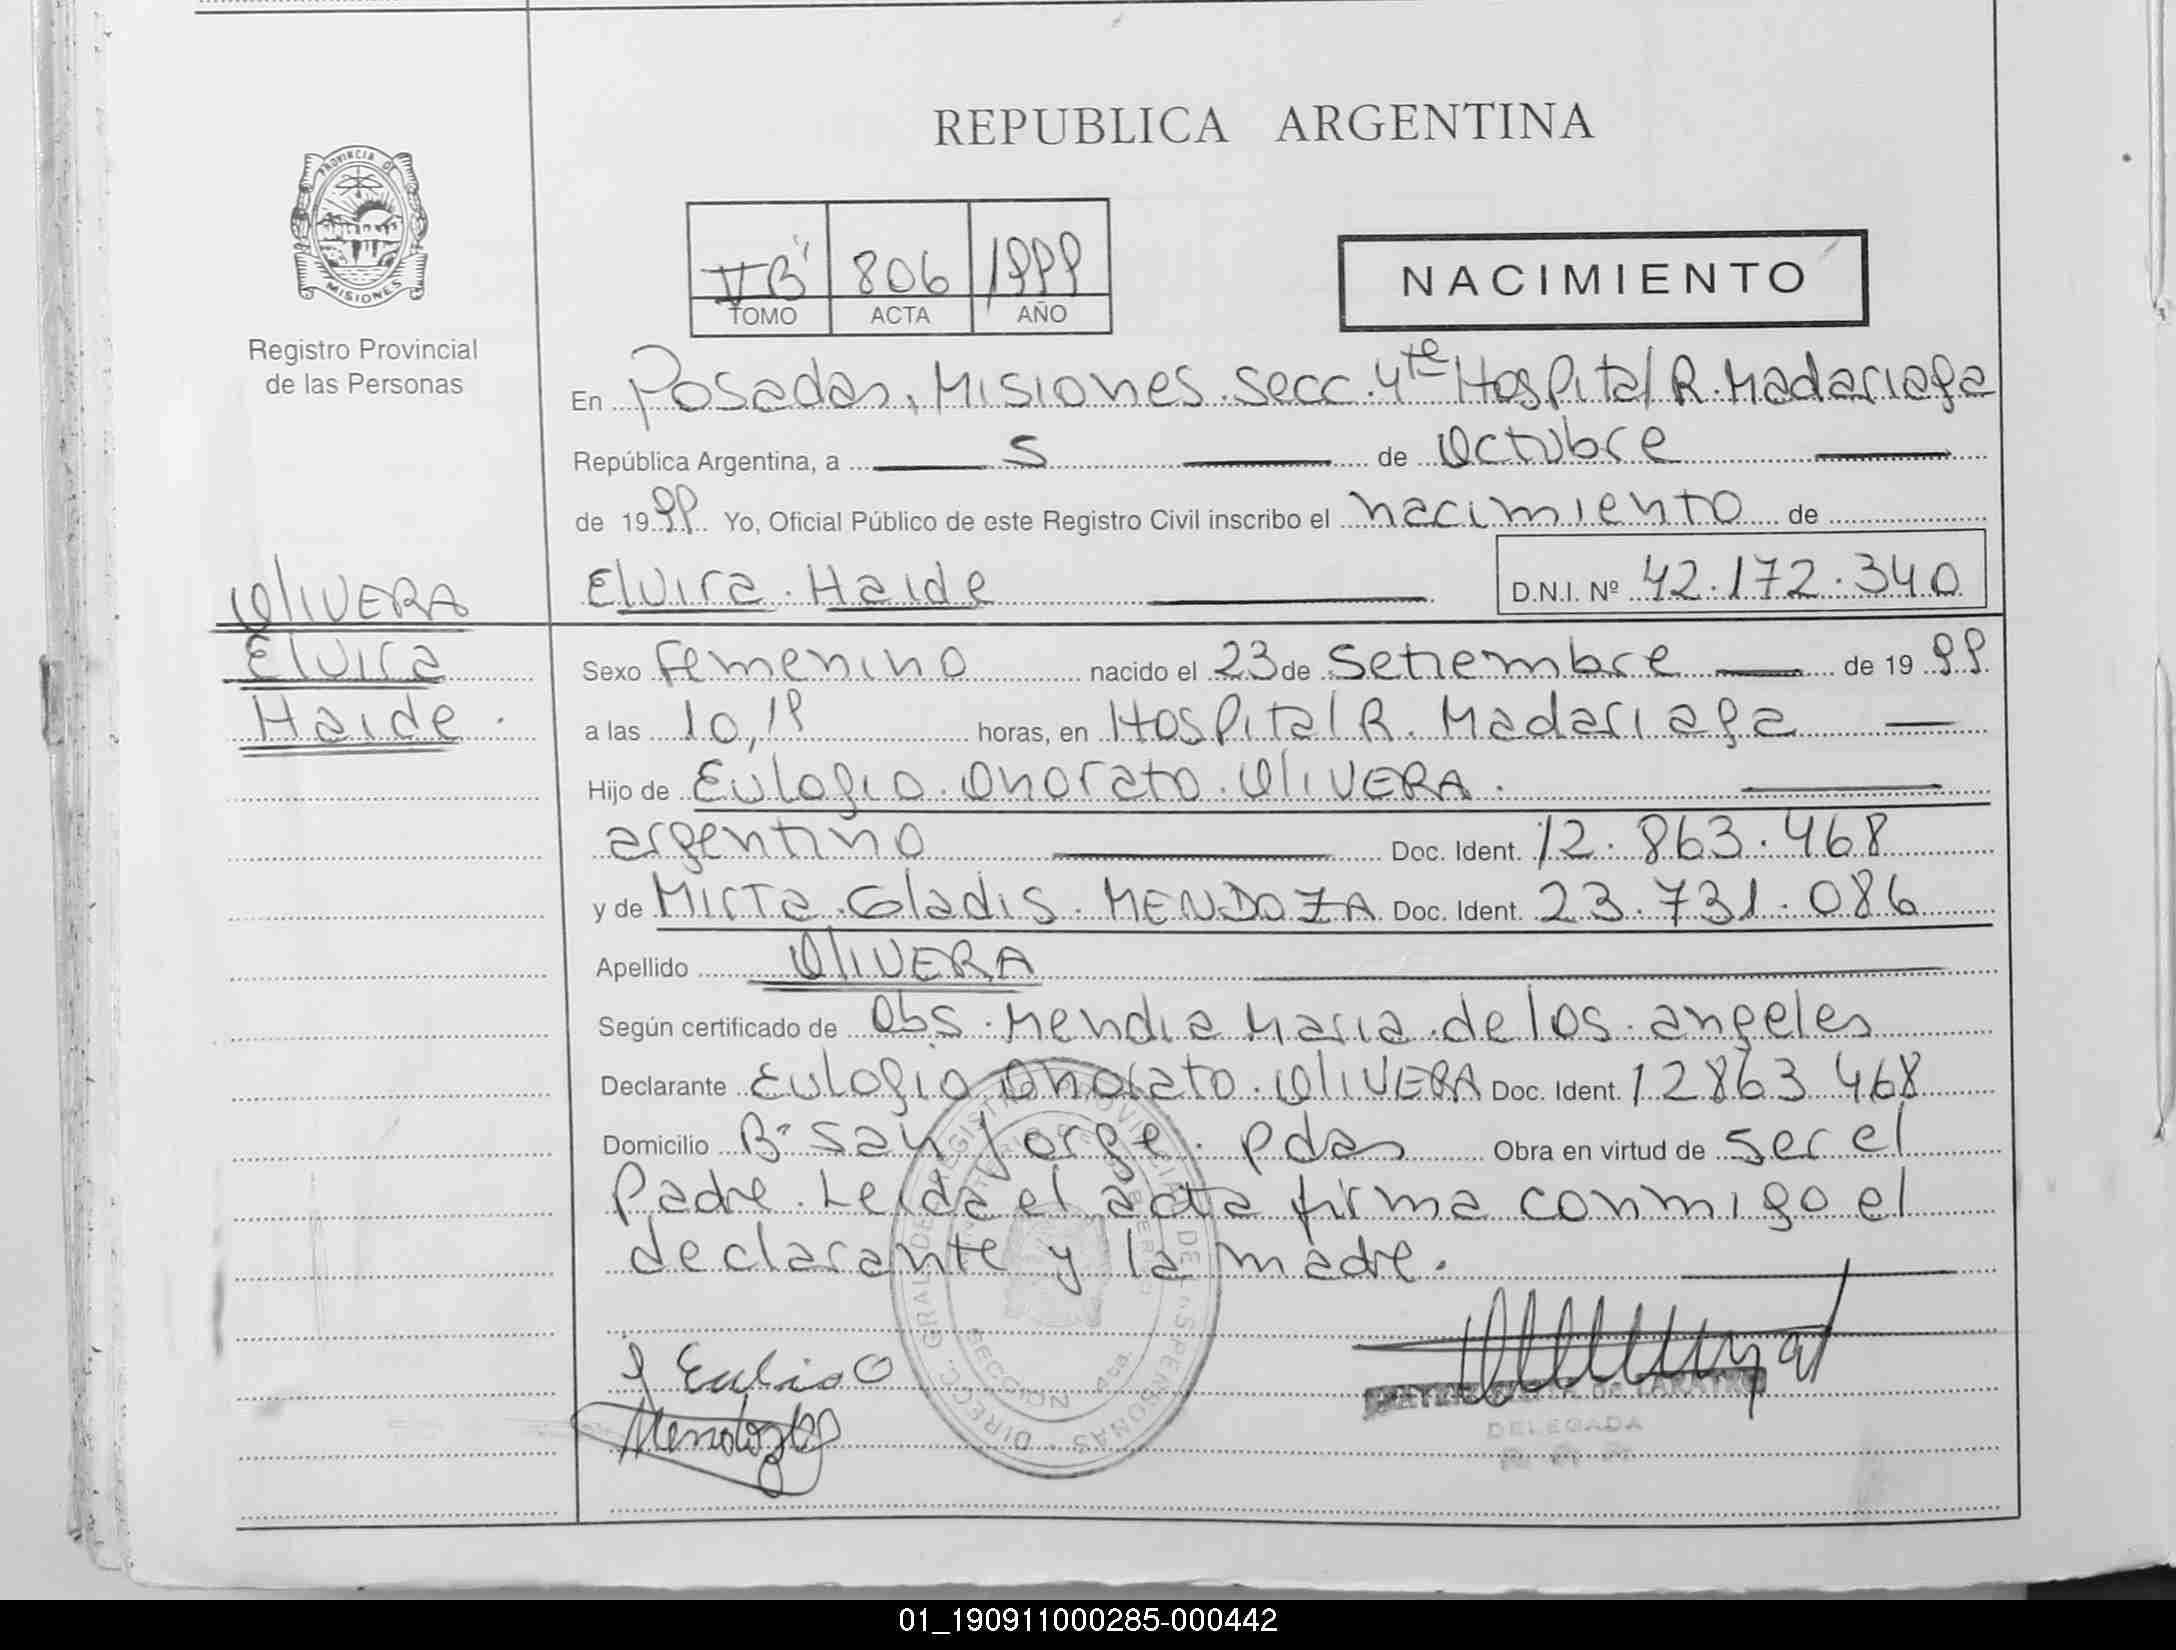 REPUBLICA ARGENTINA
PROVINCIA DE
MISIONES
Registro Provincial
de las Personas
VB" 806 1999
TOMO ACTA AÑO
NACIMIENTO
En Posadas, Misiones. Secc. 4te Hospital R. Madariaga
República Argentina, a 5 de Octubre
de 1999 Yo, Oficial Público de este Registro Civil inscribo el nacimiento de
Elvira Haide D.N.I. Nº 42.172.340
OLIVERA
Elvira
Haide.
Sexo Femenino nacido el 23 de Setiembre de 1999
a las 10,19 horas, en Hospital R. Madariaga
Hijo de Eulogio Onorato OLIVERA.
argentino Doc. Ident. 12.863.468
y de Mirta Gladis MENDOZA Doc. Ident. 23.731.086
Apellido OLIVERA
Según certificado de Obs. Mendia Maria de los angeles
Declarante Eulogio Onorato OLIVERA Doc. Ident. 12863468
Domicilio B° San Jorge. Pdas Obra en virtud de ser el
Padre. Leida el acta firma conmigo el
declarante y la madre.
DIRECC. GRAL. DEL REGISTRO PROVINCIAL DE LAS PERSONAS
SECCION 4ta.
Mendoza
DELEGADA
01_190911000285-000442